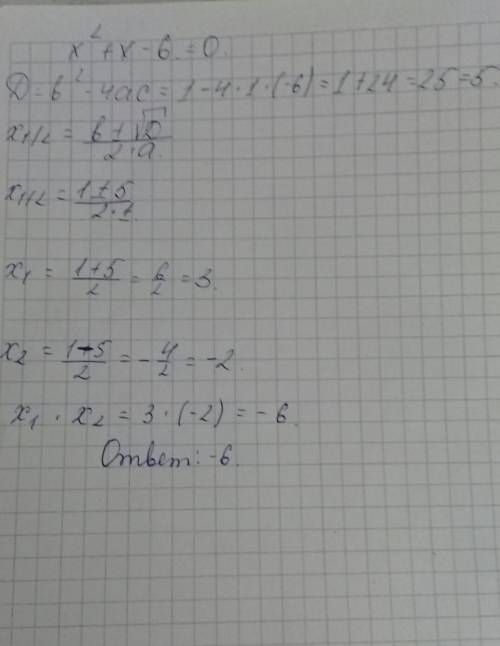 x² + x - 6 = 0.
D = b² - 4ac = 1 - 4 · 1 · (-6) = 1 + 24 = 25 = 5.
x₁/₂ = (b ± √D) / (2·a)
x₁/₂ = (1 ± 5) / (2·1)
x₁ = (1+5)/2 = 6/2 = 3.
x₂ = (1-5)/2 = -4/2 = -2.
x₁ · x₂ = 3 · (-2) = -6.
Ответ: -6.